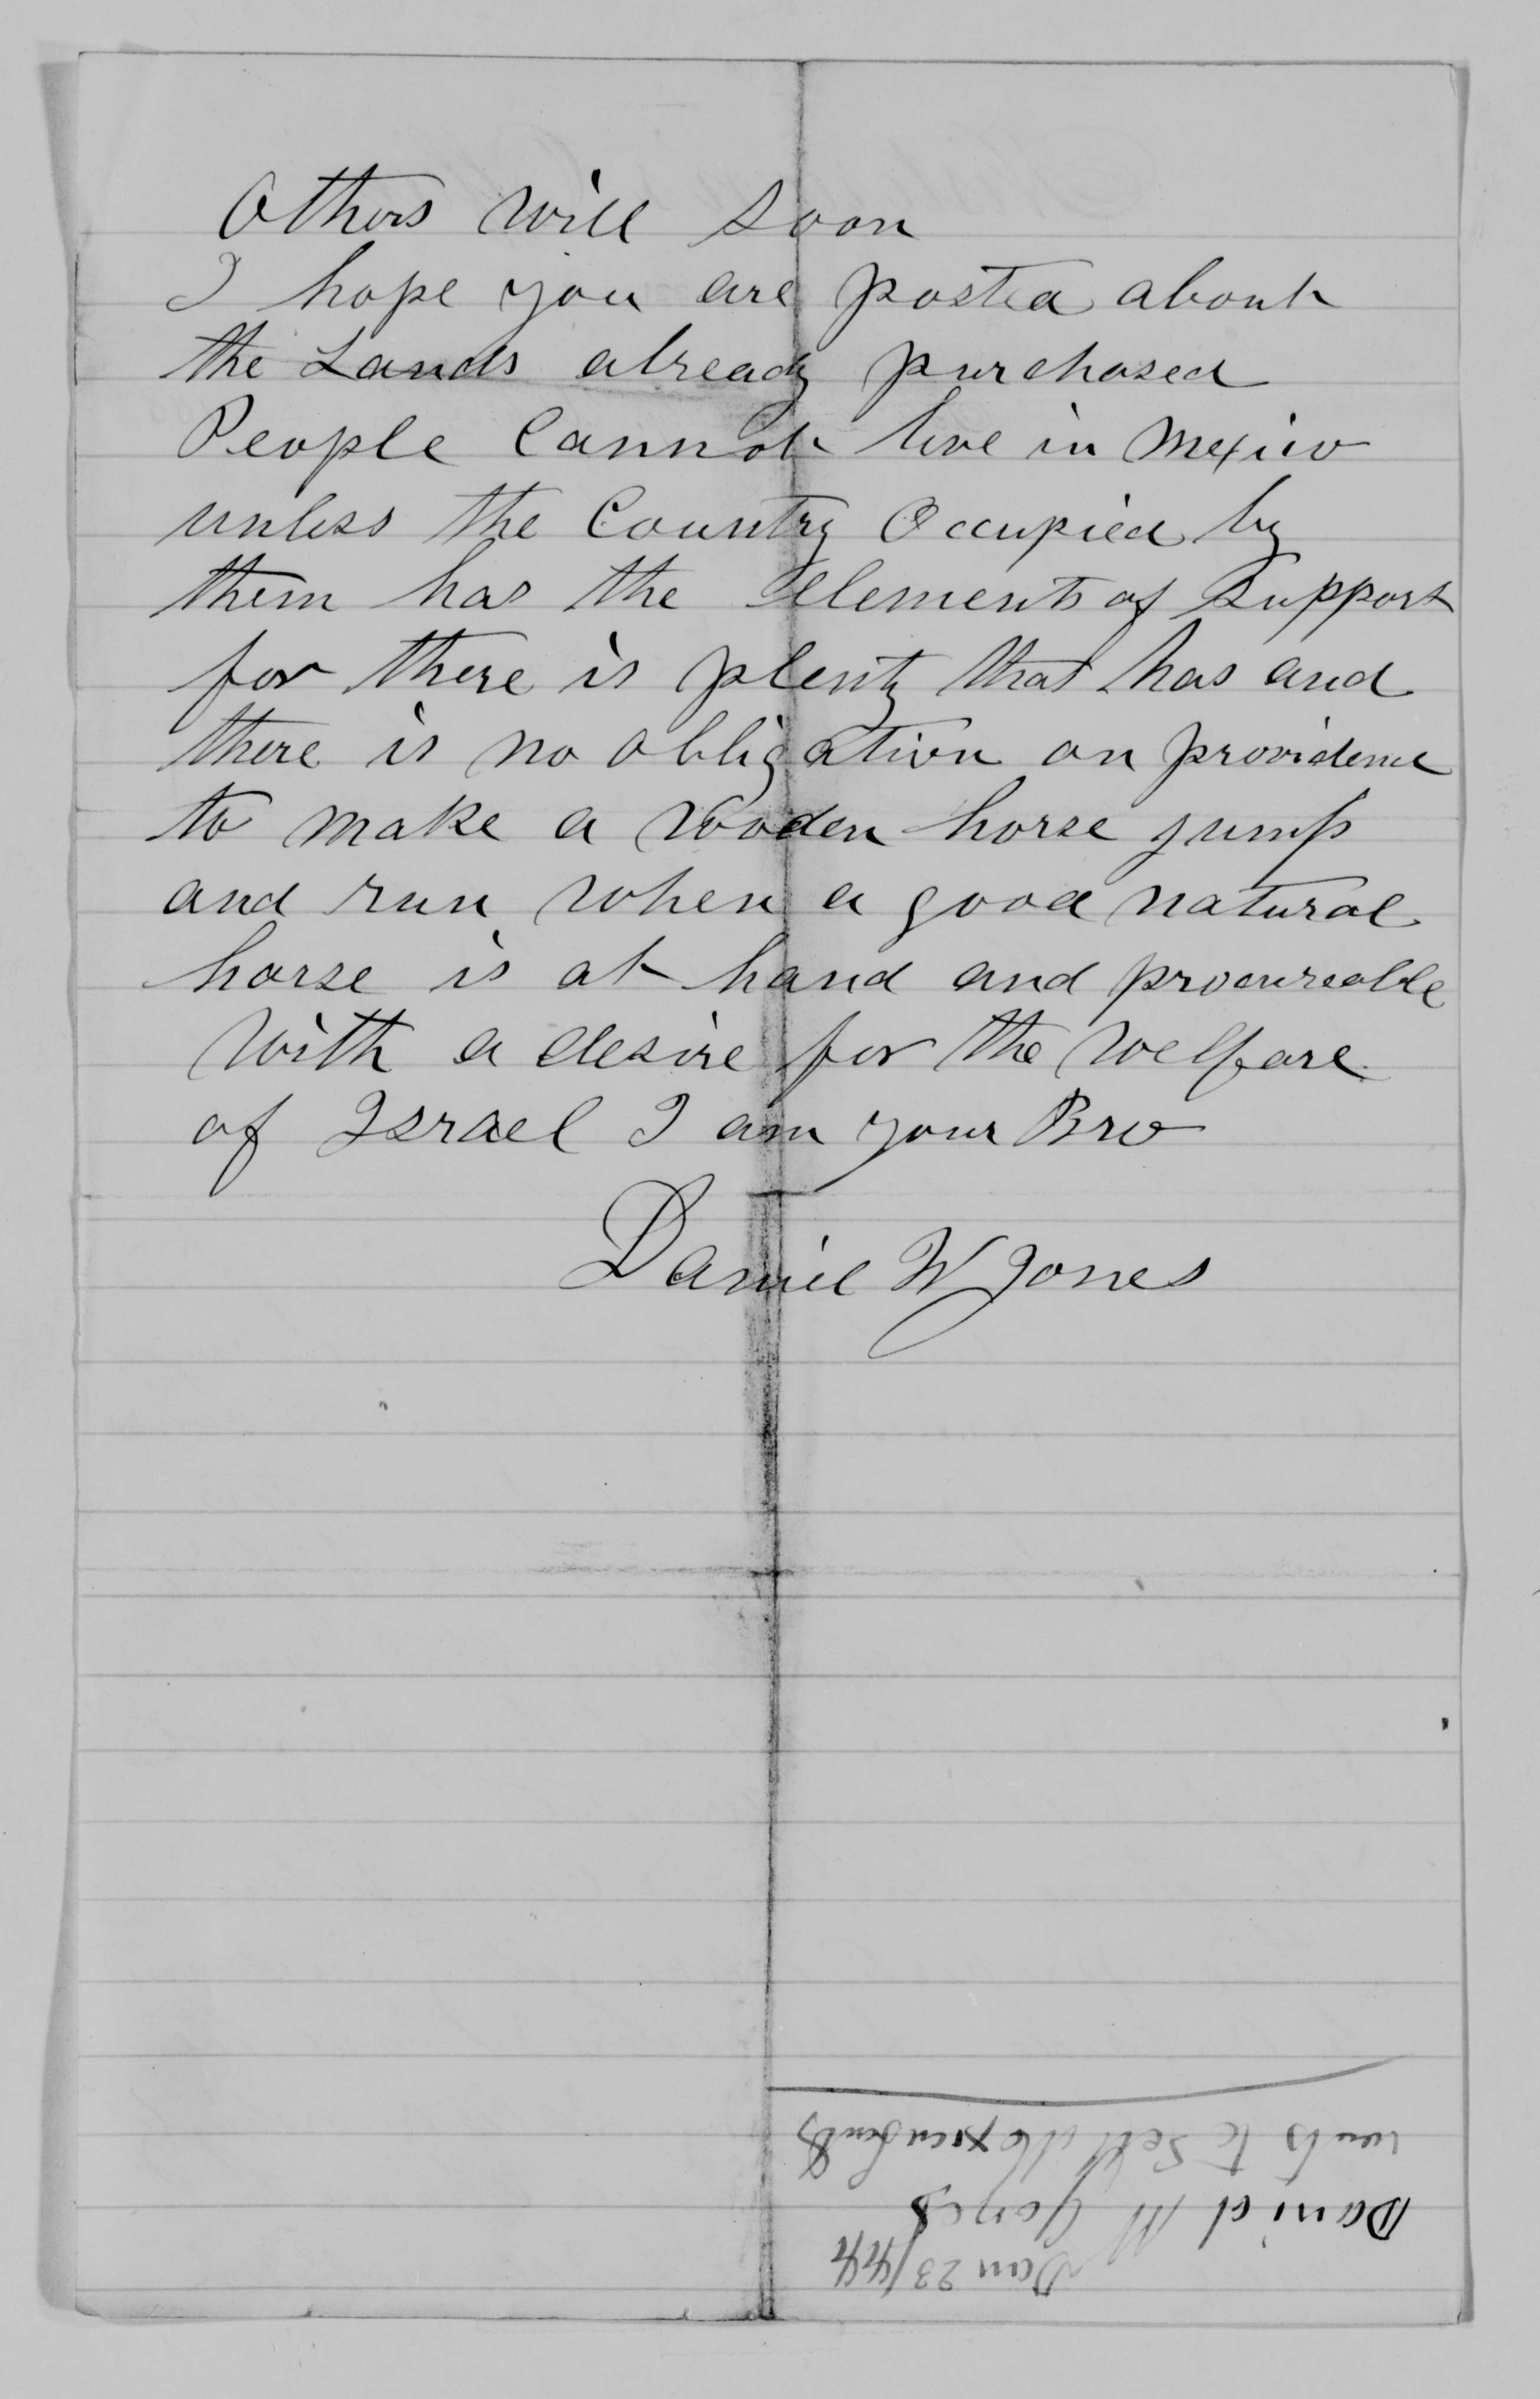 Others will soon
I hope you are posted about
the Lands already purchased
People Cannot live in Mexico
unless the Country Occupied by
them has the Elements of Support
for there is plenty that has and
there is no obligation on providence
to make a wooden horse jump
and run when a good natural
horse is at hand and procureable
With a desire for the welfare
of Israel I am your Bro
Daniel W Jones
Jan 23/
Daniel W Jones
wants to Sell Mexican